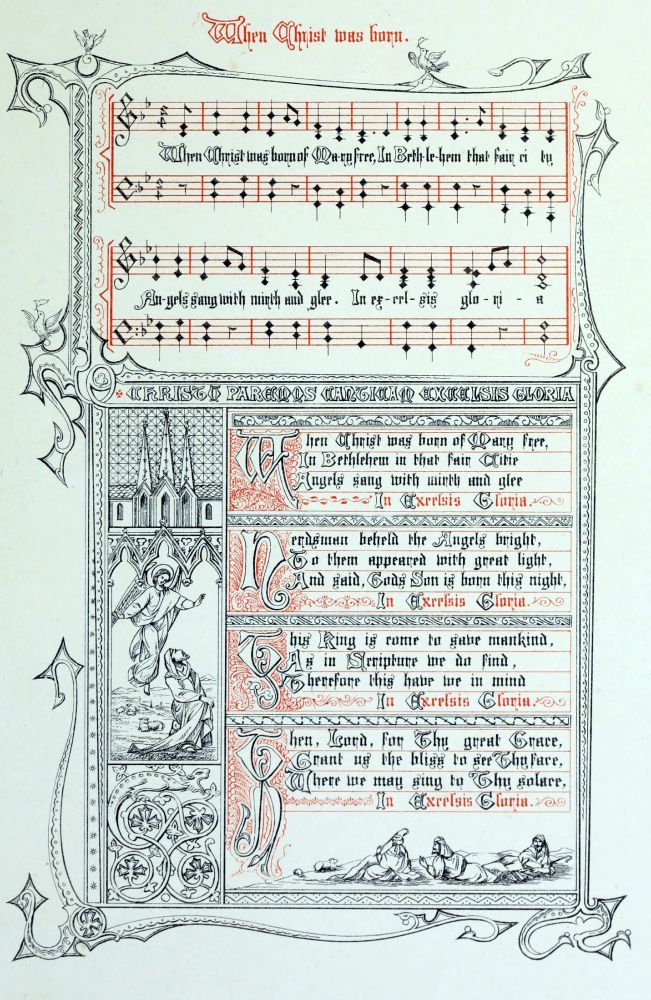 When Christ was born.
When Christ was born of Ma-ry free, In Beth-le-hem that fair ci ty
An-gels sang with mirth and glee. In ex-cel-sis glo-ri-a
CHRISTO PAREMUS CANTICAM EXCELSIS GLORIA
When Christ was born of Mary free,
In Bethlehem in that fair Citie
Angels sang with mirth and glee
In Excelsis Gloria.
Herdsman beheld the Angels bright,
To them appeared with great light,
And said, Gods Son is born this night,
In Excelsis Gloria.
This King is come to save mankind,
As in Scripture we do find,
Therefore this have we in mind
In Excelsis Gloria.
Then, Lord, for Thy great Grace,
Grant us the bliss to see Thy face,
Where we may sing to Thy solace,
In Excelsis Gloria.